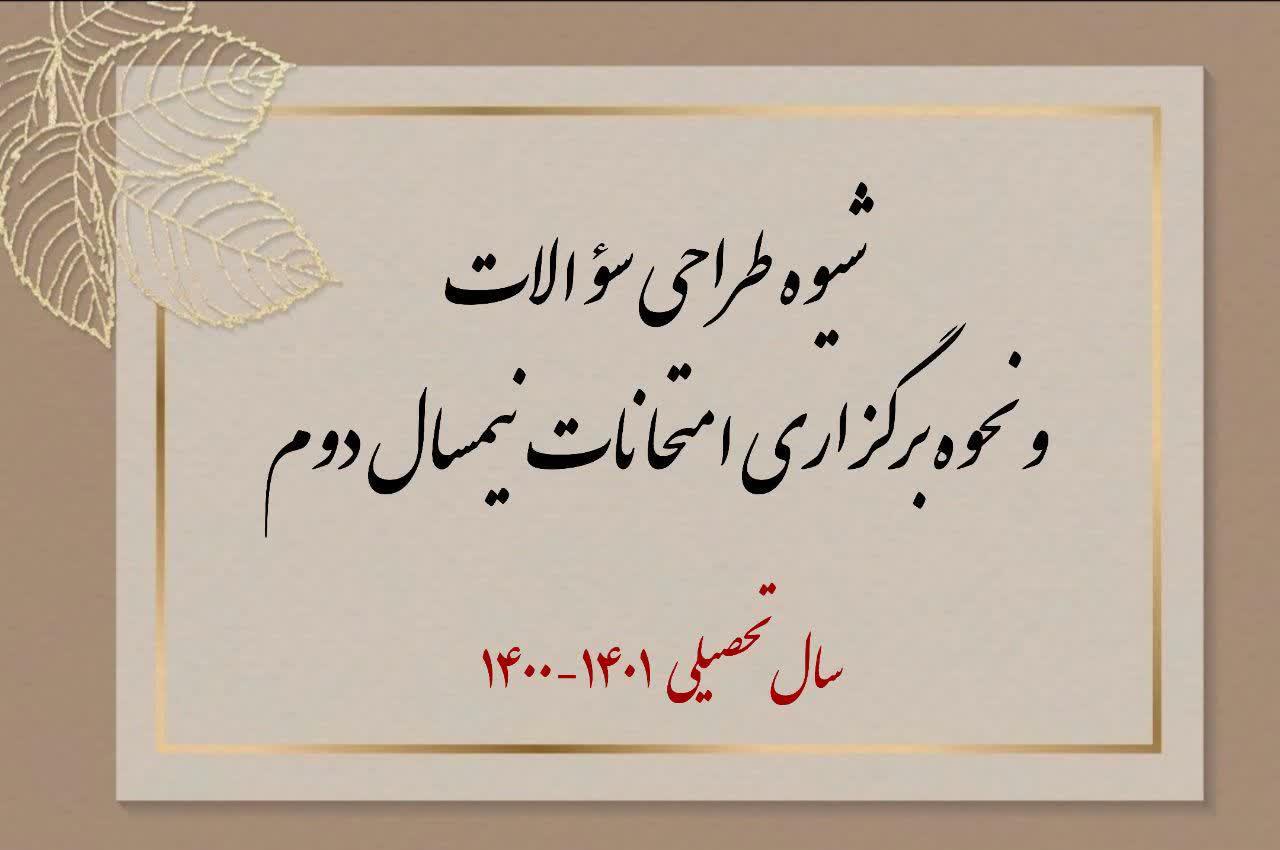 شیوه طراحی سؤالات
و نحوه برگزاری امتحانات نیمسال دوم
سال تحصیلی ۱۴۰۱-۱۴۰۰